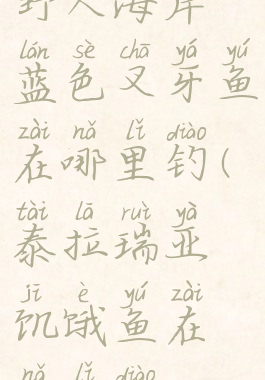 野人海岸
lán sè chā yá yú
蓝色叉牙鱼
zài nǎ lǐ diào
在哪里钓(
tài lā ruì yà
泰拉瑞亚
jī è yú zài
饥饿鱼在
nǎ lǐ diào